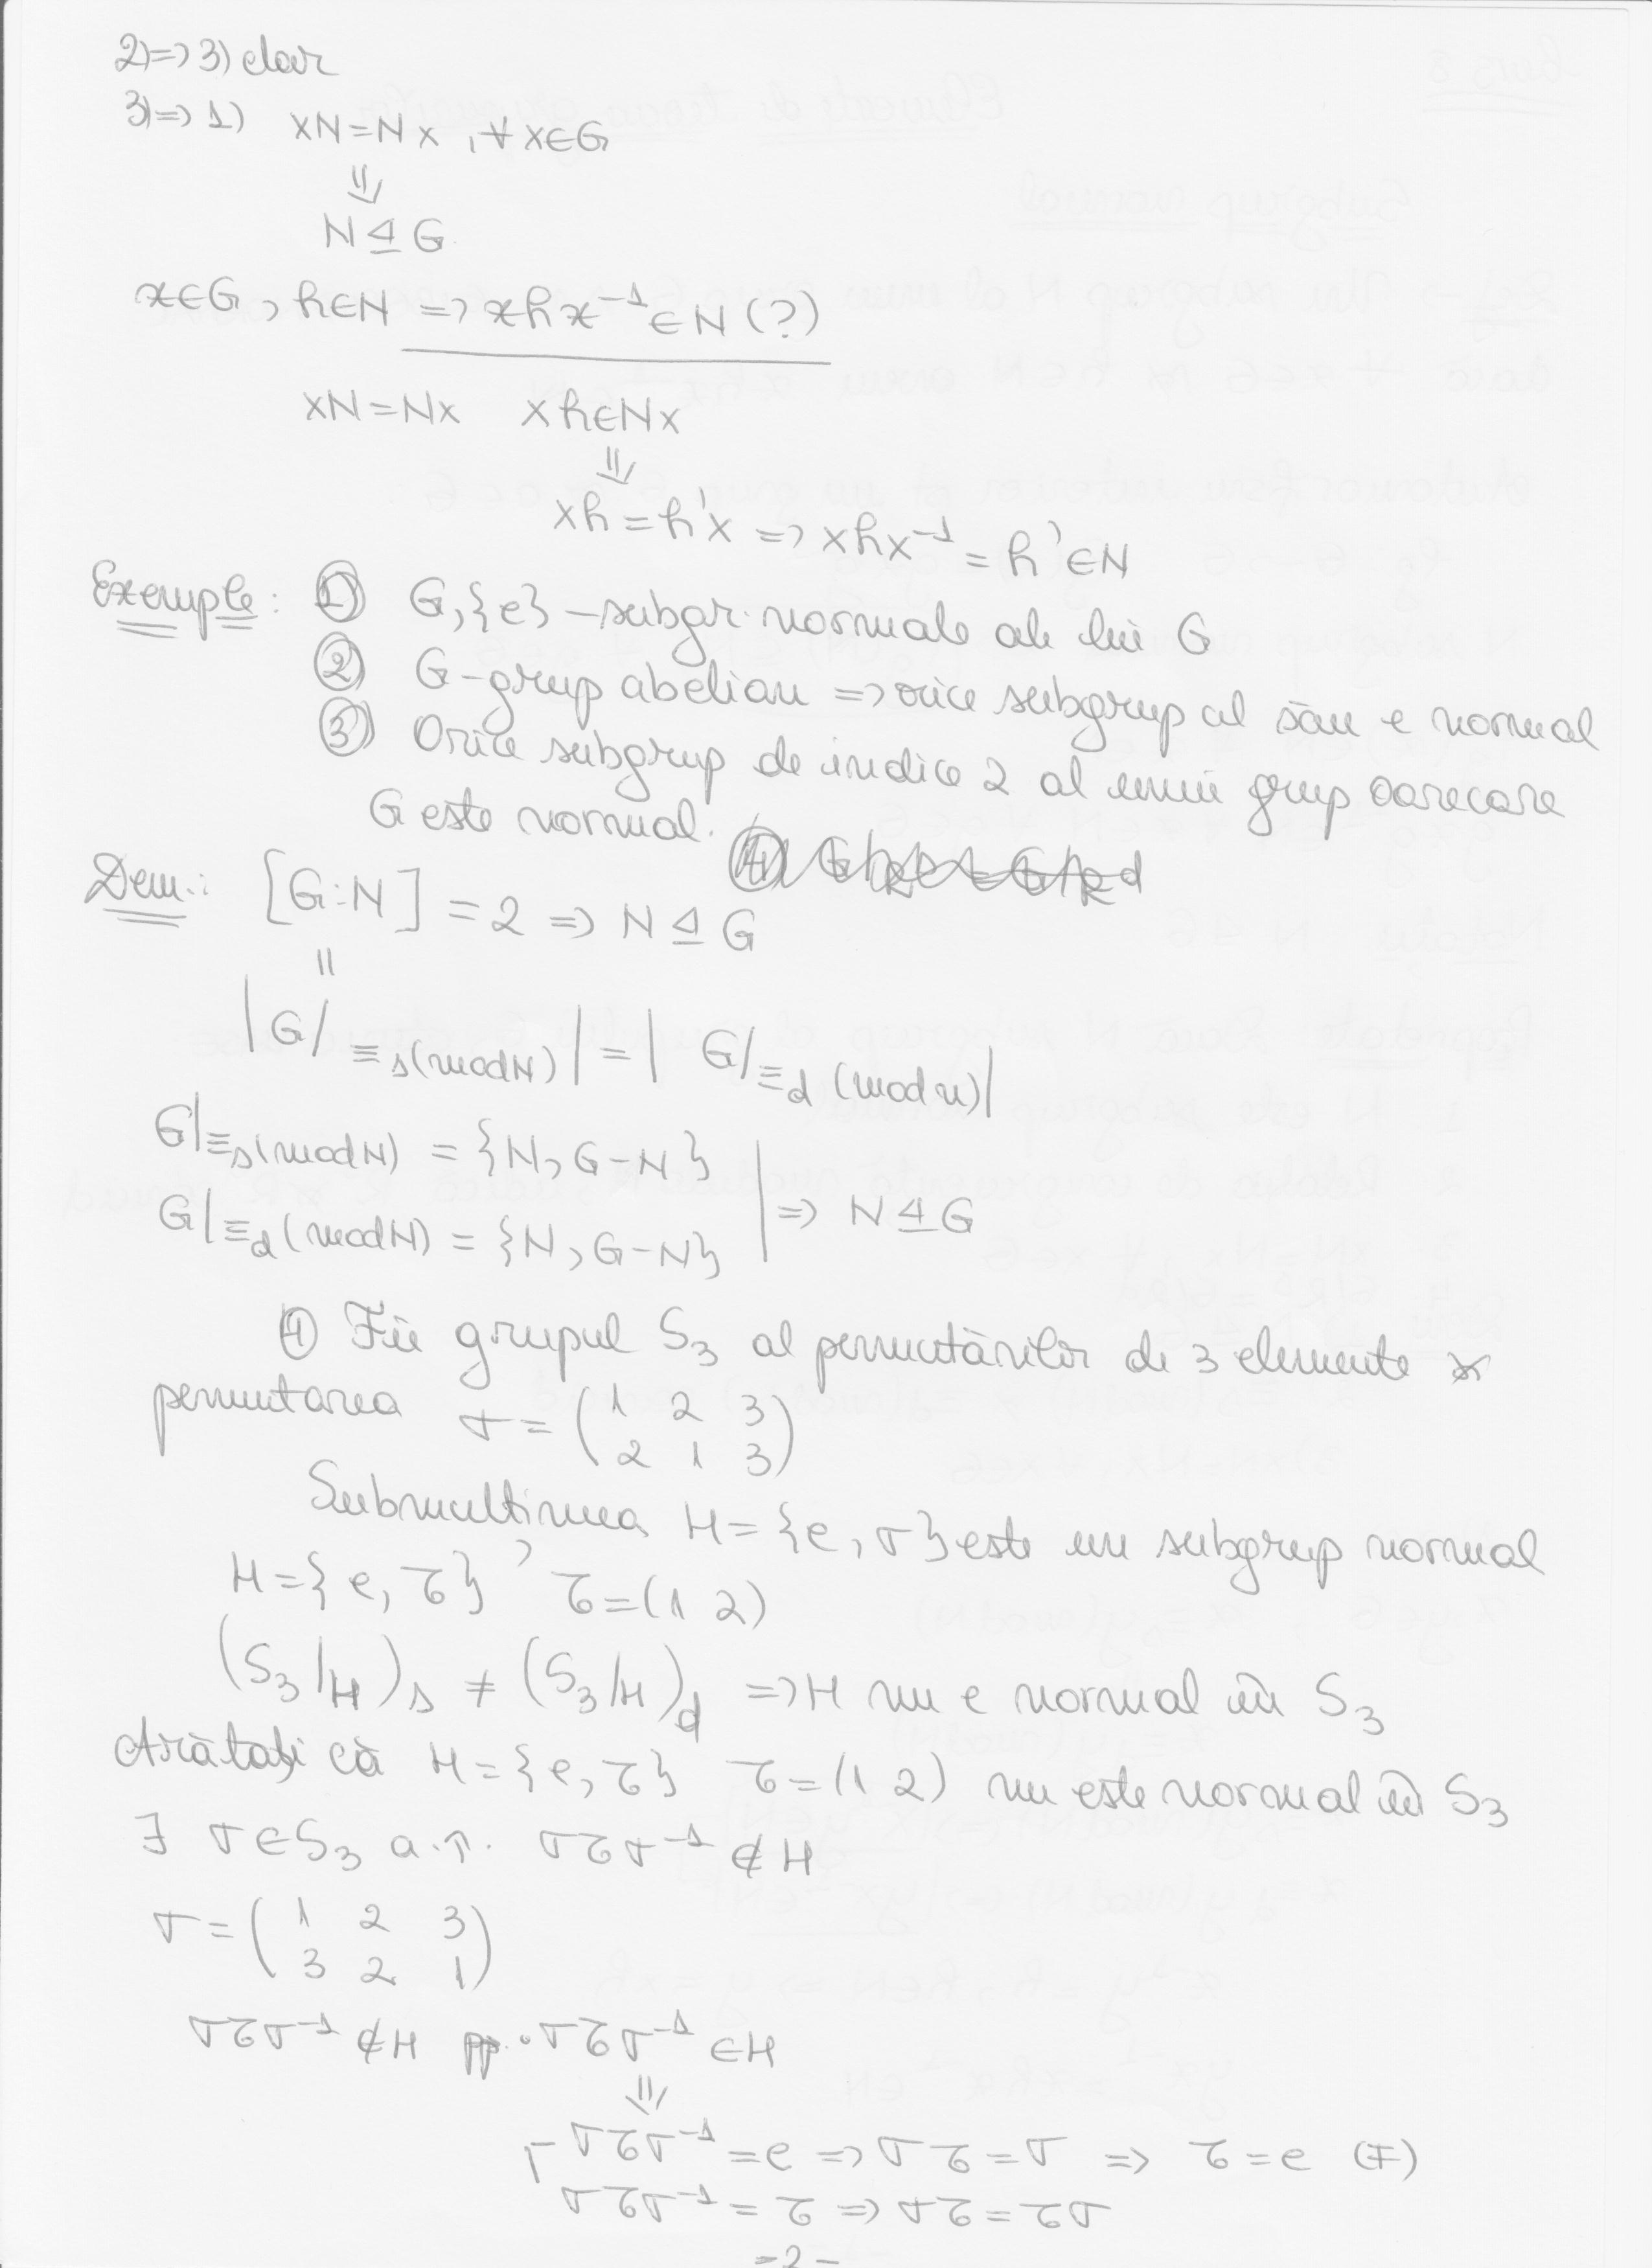 2) => 3) clar
3) => 1) xN = Nx, ∀ x∈G
⇓
N ⊴ G
x∈G, h∈N => xhx⁻¹ ∈ N (?)
xN = Nx xh∈Nx
⇓
xh = h'x => xhx⁻¹ = h' ∈N
Exemple: ① G, {e} – subgr. normale ale lui G
② G – grup abelian => orice subgrup al său e normal
③ Orice subgrup de indice 2 al unui grup oarecare
G este normal.
Dem.: [G:N] = 2 => N ⊴ G
||
|G/≡s(mod N)| = |G/≡d (mod n)|
G/≡s(mod N) = {N, G-N}
G/≡d (mod N) = {N, G-N} | => N ⊴ G
④ Fie grupul S₃ al permutărilor de 3 elemente și
permutarea σ = (1 2 3
2 1 3)
Submulțimea H = {e, σ} este un subgrup normal
H = {e, τ} τ = (1 2)
(S₃/H)s ≠ (S₃/H)d => H nu e normal în S₃
Arătați că H = {e, τ} τ = (1 2) nu este normal în S₃
∃ σ∈S₃ a.î. στσ⁻¹ ∉ H
σ = (1 2 3
3 2 1)
στσ⁻¹ ∉ H pp. στσ⁻¹ ∈ H
⇓
- στσ⁻¹ = e => στ = σ => τ = e (F)
στσ⁻¹ = τ => στ = τσ
-2-